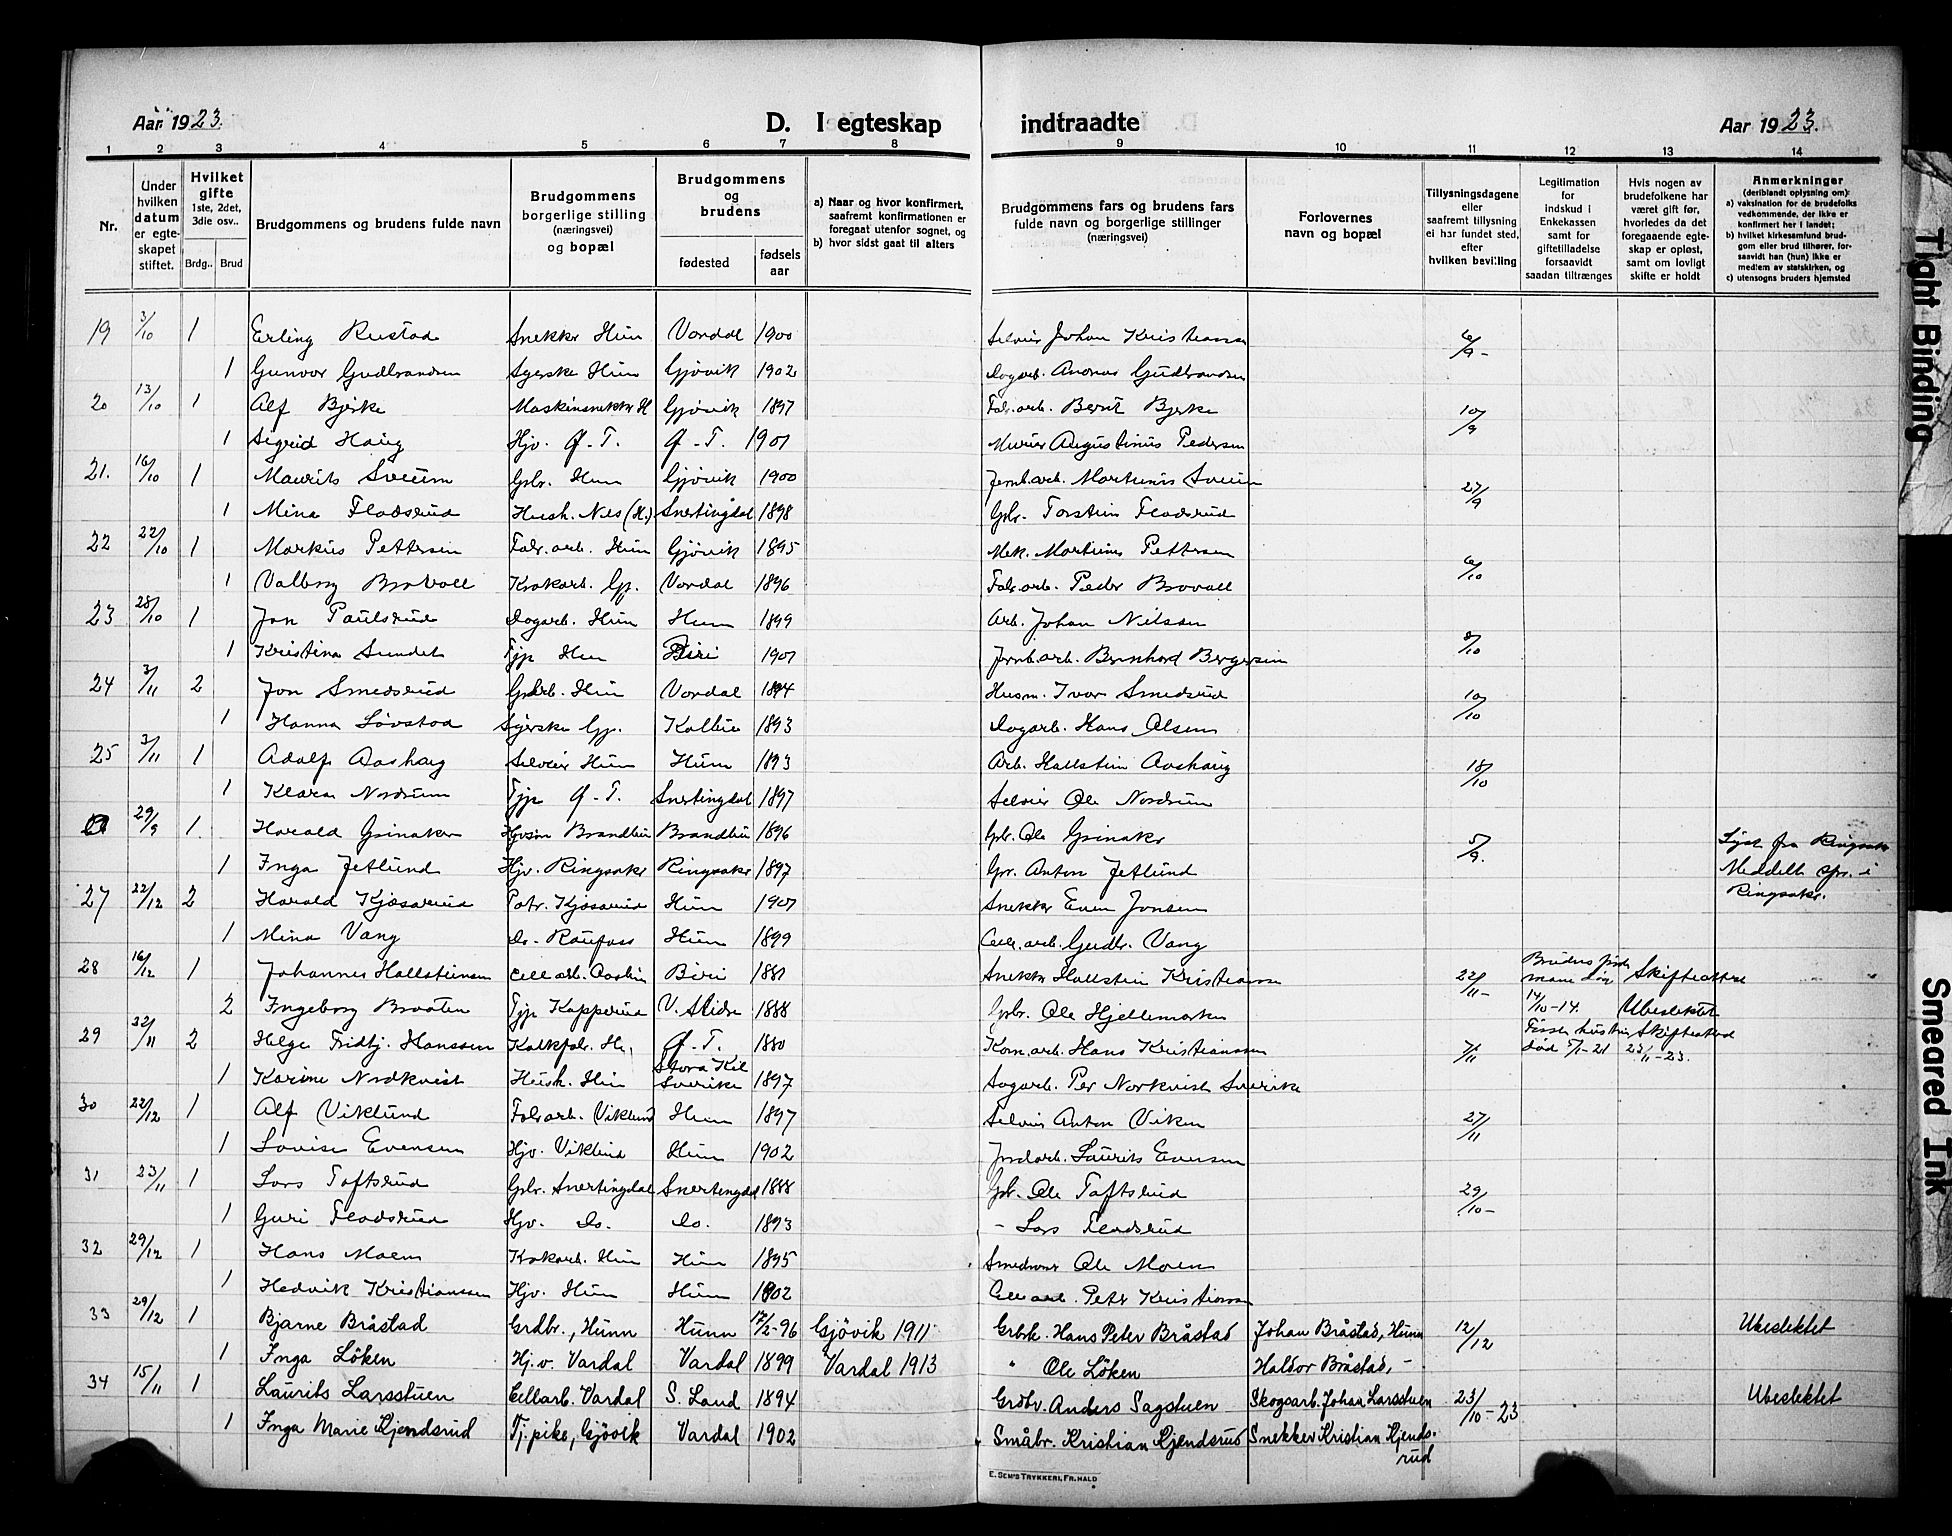 Aar 1923.
D. I egteskap indtraadte
Aar 1923.
1 2 3 4 5 6 7 8 9 10 11 12 13 14
Nr.
Under hvilken datum er egteskapet stiftet.
Hvilket gifte 1ste, 2det, 3die osv..
Brdg.. Brud
Brudgommens og brudens fulde navn
Brudgommens borgerlige stilling (næringsvei) og bopæl
Brudgommens og brudens
fødested
fødsels aar
a) Naar og hvor konfirmert, saafremt konfirmationen er foregaat utenfor sognet, og
b) hvor sidst gaat til alters
Brudgommens fars og brudens fars fulde navn og borgerlige stillinger (næringsvei)
Forlovernes navn og bopæl
Tillysningsdagene eller saafremt tillysning ei har fundet sted, efter hvilken bevilling
Legitimation for indskud i Enkekassen samt for giftetilladelse forsaavidt saadan tiltrænges
Hvis nogen av brudefolkene har været gift før, hvorledes da det foregaaende egteskap er opløst, samt om lovligt skifte er holdt
Anmerkninger (deriblandt oplysning om):
a) vaksination for de brudefolks vedkommende, der ikke er konfirmert her i landet;
b) hvilket kirkesamfund brudgom eller brud tilhører, forsaavidt han (hun) ikke er medlem av statskirken, og
c) utensogns bruders hjemsted
19 3/10 1 Erling Rustad Snekkr Hun Vardal 1900 Johan Kristiansen 6/9 -
1 Gunvor Gudbrandsen Syerske Hun Gjøvik 1902 Dagarb. Andreas Gudbrandsen
20 13/10 1 Alf Bjerke Maskinsnekkr H Gjøvik 1897 Fabr.arb. Bernt Bjerke 10/9
1 Sigrid Haug Hjv. Ø.-T. Ø.-T. 1901 Murer Augustinus Pedersen
21. 16/10 1 Maurits Sveum Gbr. Hun Gjøvik 1900 Jernb.arb. Martinus Sveum 27/9
1 Mina Fladsrud Hush. Nils (H.) Snertingdal 1898 Gbr. Torstein Fladsrud
22 22/10 1 Markus Pettersen Fabr.arb. Hun Gjøvik 1895 Mek. Martinus Pettersen 6/10
1 Valborg Bravoll Krokarb. Gj. Vardal 1896 Fabr.arb. Peder Bravoll
23 28/10 1 Jon Paulsrud Dagarb. Hun Hun 1899 Arb. Johan Nilsen 8/10
1 Kristina Sundet Tjp Hun Biri 1901 Jernb.arb. Bernhard Bergersen
24 3/11 2 Jon Smedsrud Hun Vardal 1894 Husm. Ivar Smedsrud 10/10
1 Hanna Løvstad Syerske Gj. Kolbu 1893 Dagarb. Hans Olsen
25 3/11 1 Adolf Aashaug Selveier Hun Hun 1893 Arb. Hallstein Aashaug 18/10
1 Klara Nordrum Tjp Ø.-T. Snertingdal 1897 Selveier Ole Nordrum
29/9 1. Harald Grinaker Brandbu Brandbu 1896 Gbr. Ole Grinaker 5/9. Lyst fra Ringsaker
1 Inga Jetlund Hjv. Ringsaker Ringsaker 1897 Gbr. Anton Jetlund Meddelt spr. i
Ringsaker.
27 22/12 2 Harald Kjøsarud Patr. Kjøsarud Hun 1901 Snekkr Even Jonsen
1 Mina Vang Do. Raufoss Hun 1899 Cell.arb. Gudbr. Vang
28 16/12 1 Johannes Hallsteinsen Cellarb. Biri 1881 Snekkr Hallstein Kristiansen 22/11 - Brudens første mand død Skifteattest
2 Ingeborg Braaten Tjp Kapperud V. Slidre 1888 Gbr. Ole Hjellemarken 14/10-14. Ubeslektet
29 2 Helge Fridtj. Hanssen Kalkfabr. H. Ø.-T. 1880 Kom.arb. Hans Kristiansen 7/11 Første hustru død 5/1-21 Skifteattest 23/11-23.
1 Karine Nordkvist Hush. Hun Stora Kil Sverike 1897 Sagarb. Per Norkvist Sverike
30 22/12 1 Alf Viklund Fabr.arb. Viklund Hun 1897 Selveier Anton Viken 27/11
1 Lovise Evensen Hjv. Viklund Hun 1902 Jordarb. Laurits Evensen
31 23/11 1 Lars Toftsrud Gbr. Snertingdal Snertingdal 1888 Gbr. Ole Toftsrud 29/10 -
1 Guri Fladsrud Hjv. Do. Do. 1893 - Lars Fladsrud
32 29/12 1 Hans Moen Krokarb. Hun Hun 1895 Ole Moen
1 Hedvik Kristianssen Hjv. Hun Hun 1902 Cellarb. Peter Kristiansen
33 29/12 1 Bjarne Bråstad Grdbr., Hunn Hunn 17/2-96 Gjövik 1911 Grbrk. Hans Peter Bråstad Johan Bråstad, Hunn 12/12 Ubeslektet
1 Inga Löken Hj.v. Vardal Vardal 1899 Vardal 1913 " Ole Löken Haldor Bråstad, -
34 15/11 1 Laurits Larsstuen Cellarb. Vardal S. Land 1894 Grdbr. Anders Sagstuen Skogsarb. Johan Larsstuen 23/10-23 Ubeslektet
1 Inga Marie Kjendsrud Tj.pike, Gjövik Vardal 1902 Småbr. Kristian Kjendsrud Snekker Kristian Kjendsrud
E. SEM'S TRYKKERI, FR.HALD
Tight Binding
Smeared Ink